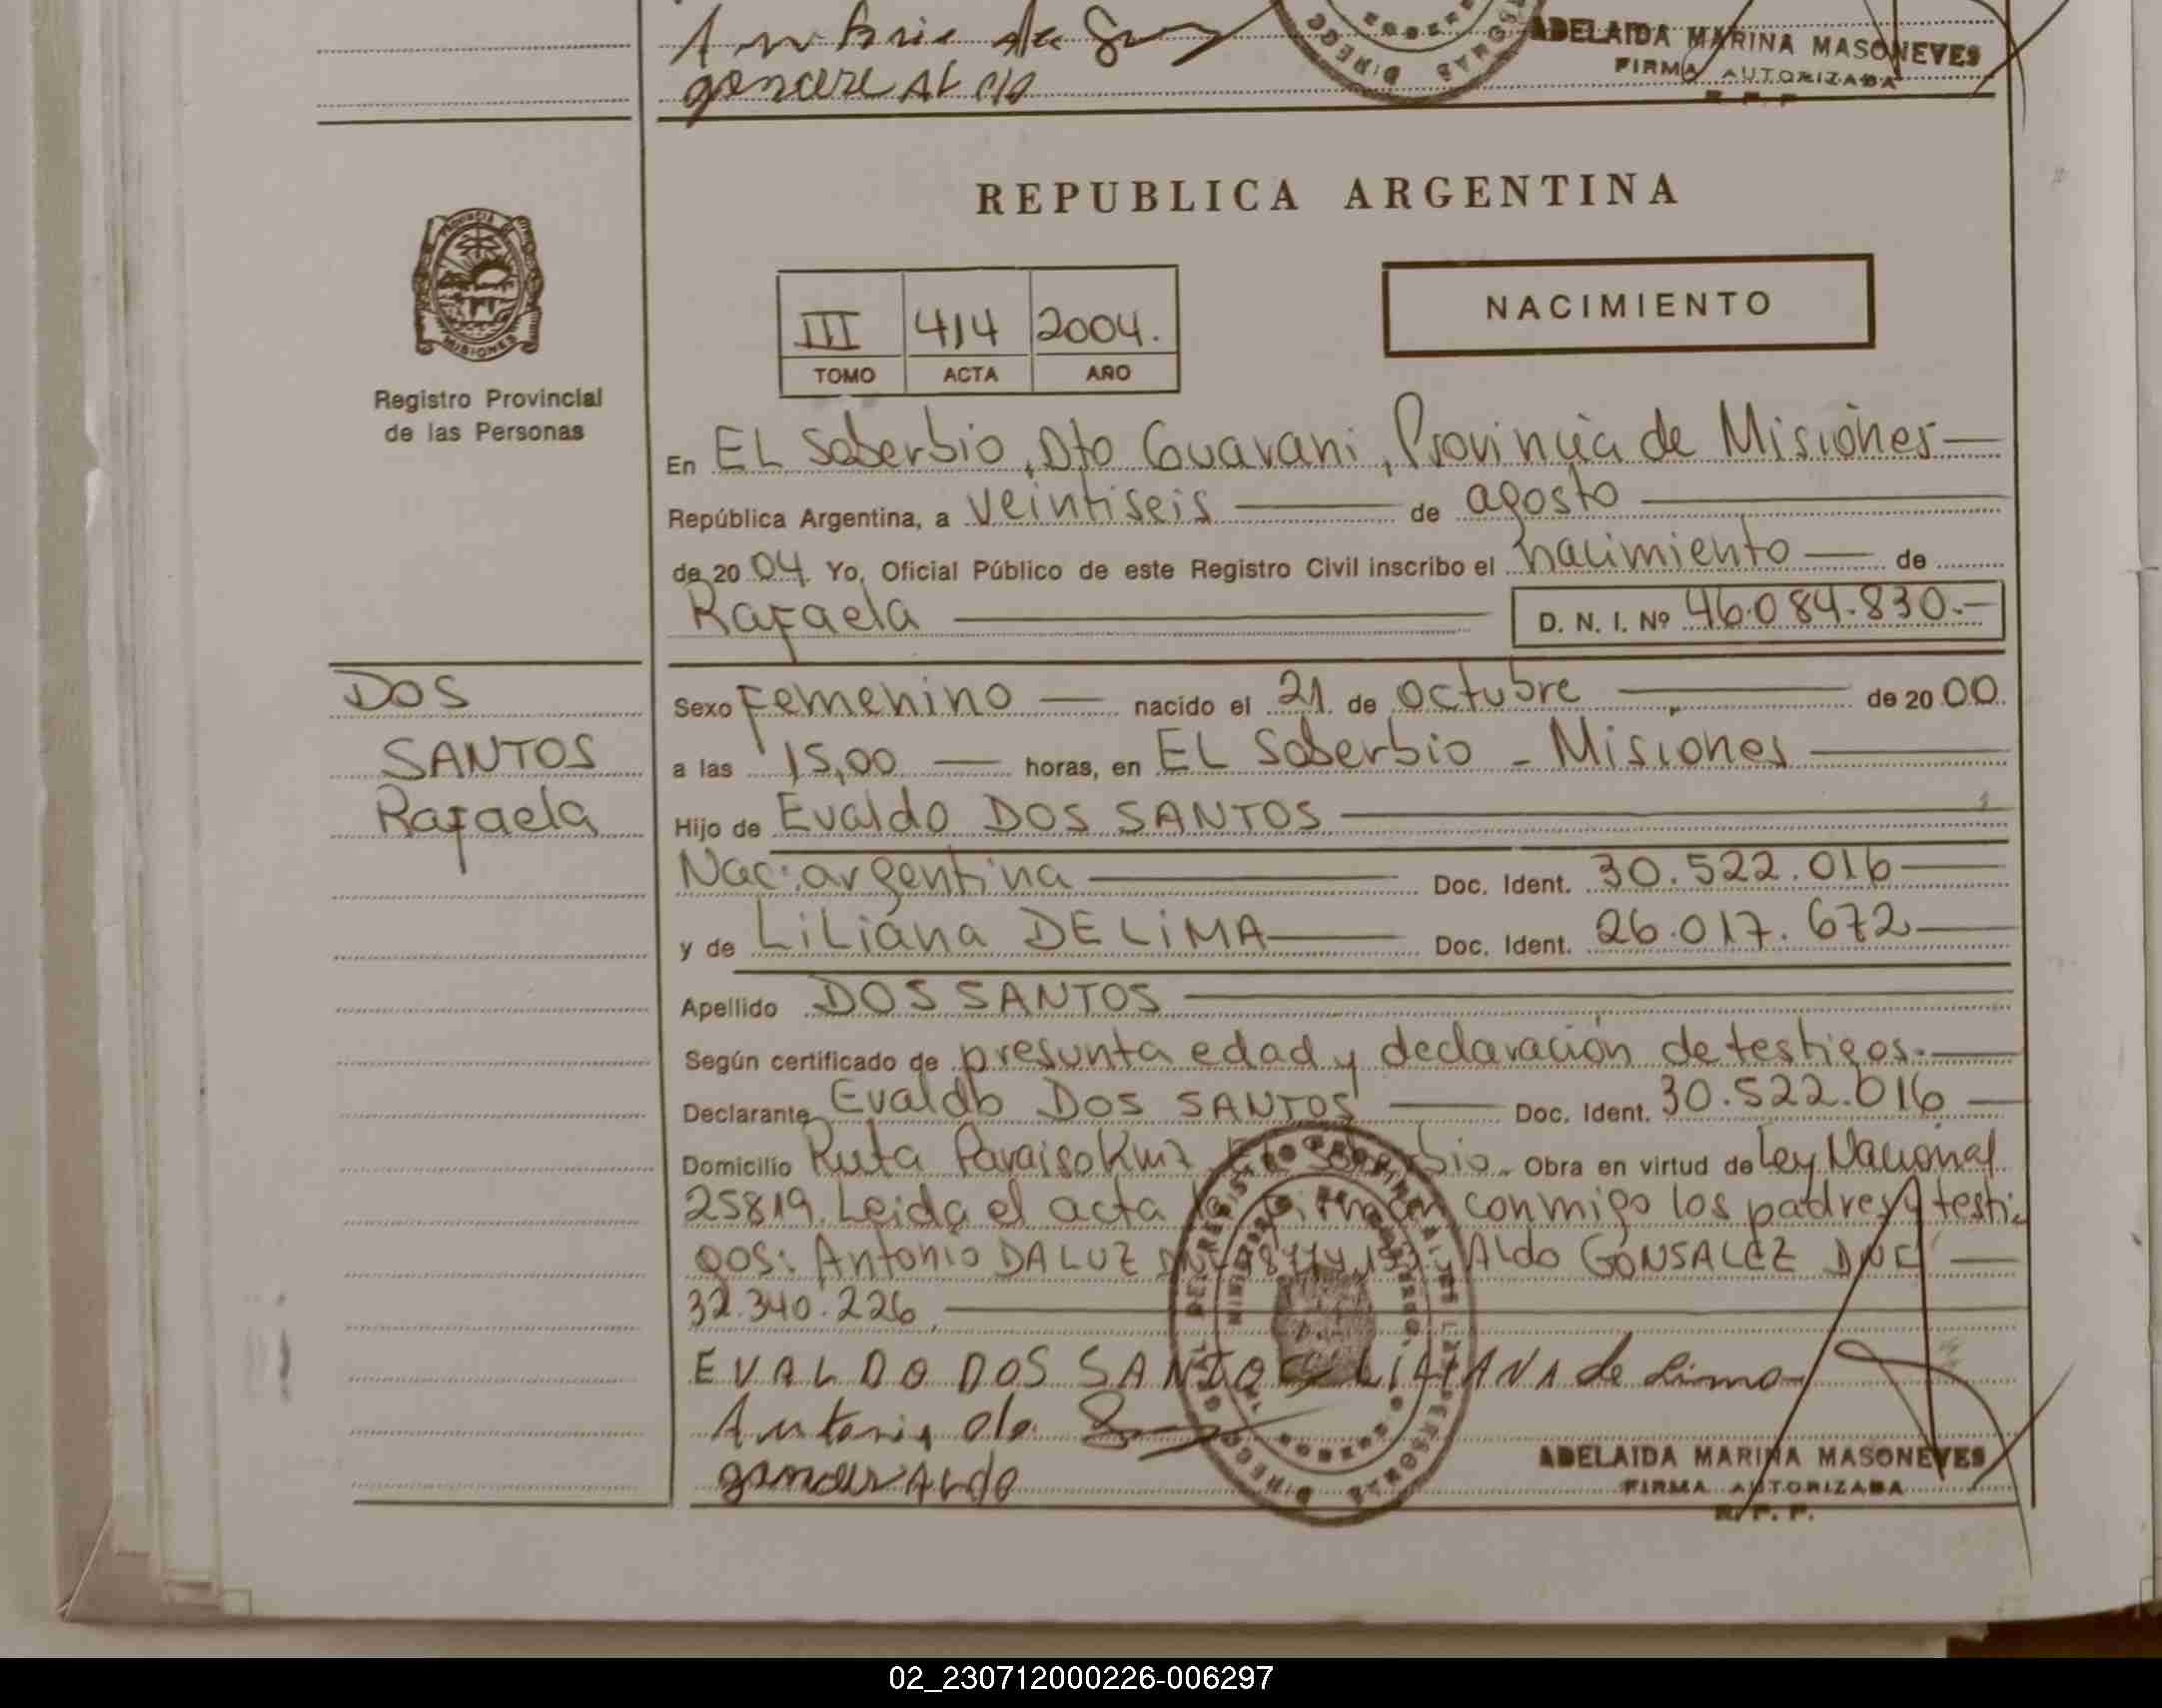 Antonio da Luz
ADELAIDA MARINA MASONEVES
FIRMA AUTORIZADA
R. P. P.
REPUBLICA ARGENTINA
PROVINCIA DE
MISIONES
III 414 2004.
TOMO ACTA AÑO
NACIMIENTO
Registro Provincial
de las Personas
En EL Soberbio, Dto Guarani, Provincia de Misiones
República Argentina, a veintiseis de agosto
de 2004. Yo, Oficial Público de este Registro Civil inscribo el nacimiento de
Rafaela D. N. I. Nº 46.084.830.-
DOS
SANTOS
Rafaela
Sexo Femenino nacido el 21 de octubre de 2000.
a las 15,00 horas, en EL Soberbio - Misiones
Hijo de Evaldo DOS SANTOS
Nac: argentina Doc. Ident. 30.522.016
y de LiLiana DE LiMA Doc. Ident. 26.017.672
Apellido DOS SANTOS
Según certificado de presunta edad y declaración de testigos.
Declarante Evaldo DOS SANTOS Doc. Ident. 30.522.016
Domicilio Ruta Paraiso Km2 El Soberbio. Obra en virtud de Ley Nacional
25819. Leida el acta la firman conmigo los padres y testi-
gos: Antonio DA LUZ y Aldo GONSALEZ DNI
32.340.226.
EVALDO DOS SANTOS LILIANA de Lima
Antonio da
ALdo
ADELAIDA MARINA MASONEVES
FIRMA AUTORIZADA
R. P. P.
02_230712000226-006297